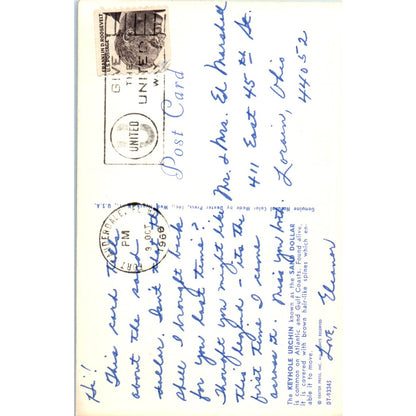 Hi!
This card tells
about the sand
dollar. Isn't that the
shell I brought back
for you last time?
Thought you might like
this legend – its the
first time I came
across it. Miss you both.
Love, Eleanor
The KEYHOLE URCHIN known as the SAND DOLLAR
is common on Atlantic and Gulf Coasts. Found alive,
it is covered with brown hair-like spines which en-
able it to move.
DT-93345
Post Card
FORT LAUDERDALE, FLA.
PM
9 OCT
1968
GIVE
THE
UNITED
WAY
UNITED
FRANKLIN D. ROOSEVELT
U.S. POSTAGE
Mr. & Mrs. Ed Marshall
411 East 45th St.
Lorain, Ohio
44052